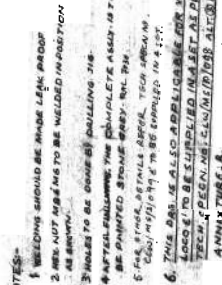 NOTES:-
1. WELDING SHOULD BE MADE LEAK PROOF
2. HEX NUT M8 TO BE WELDED IN POSITION
AS SHOWN.
3. HOLES TO BE DONE BY DRILLING JIG.
4. AFTER FINISHING, THE COMPLETE ASSLY. IS TO
BE PAINTED STONE GREY RAL
5. FOR OTHER DETAILS REFER TECH SPECN. NO.
CLW/MS/3/099 & TO BE SUPPLIED IN A SET.
6. THIS DRG. IS ALSO APPLICABLE FOR
LOCO & TO BE SUPPLIED IN A SET AS P
TECH. SPECN. NO. CLW/MS/3/098 ALT.